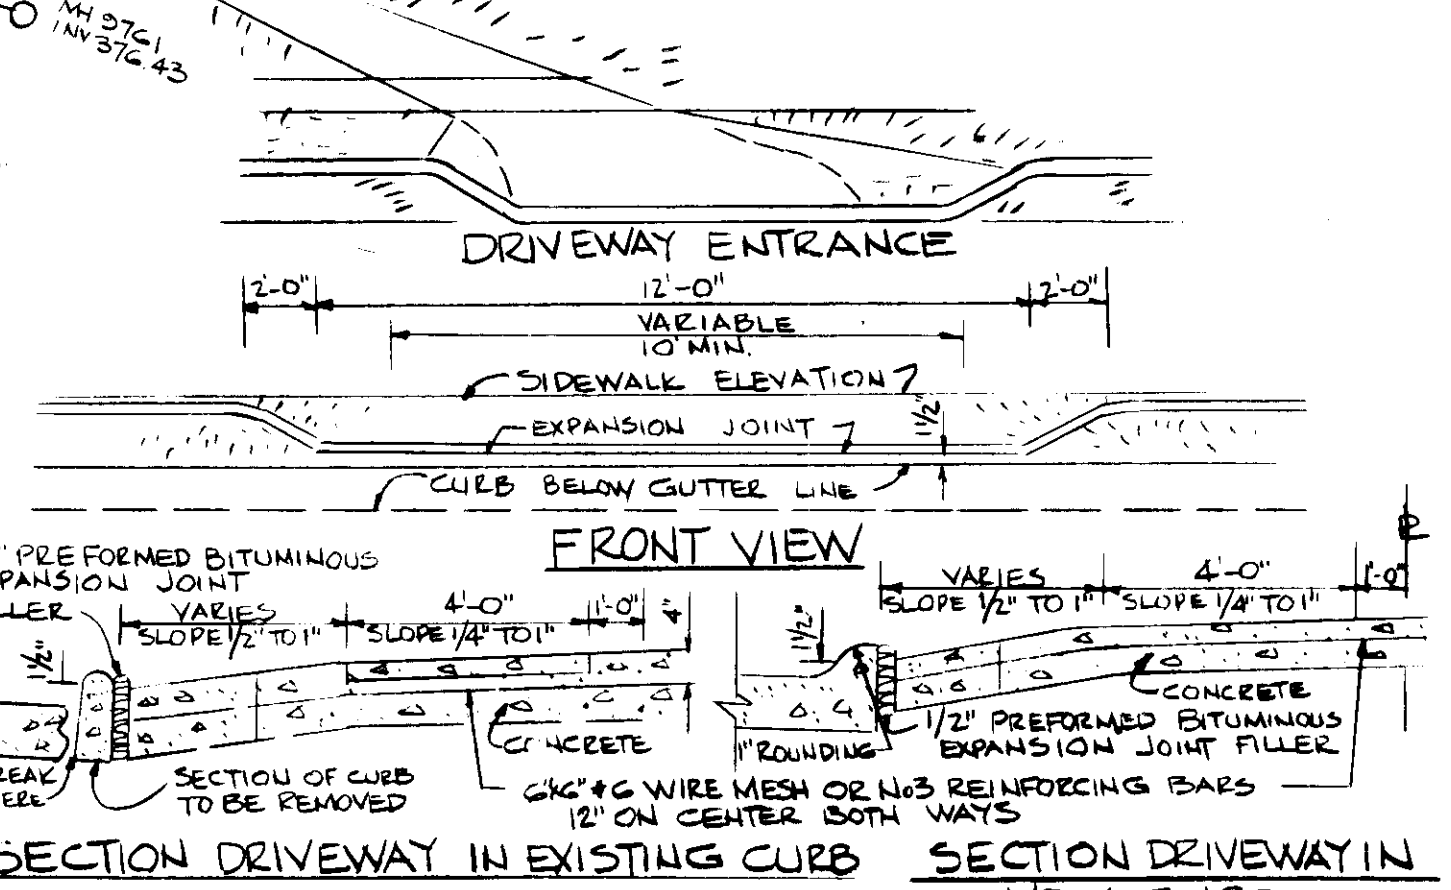 MH 9761
INV 376.43
DRIVEWAY ENTRANCE
2'-0"
12'-0"
2'-0"
VARIABLE
10' MIN.
SIDEWALK ELEVATION
1 1/2"
EXPANSION JOINT
CURB BELOW GUTTER LINE
FRONT VIEW
" PREFORMED BITUMINOUS
PANSION JOINT
LLER
VARIES
SLOPE 1/2" TO 1"
4'-0"
SLOPE 1/4" TO 1"
1'-0"
4"
1 1/2"
CONCRETE
REAK
ERE
SECTION OF CURB
TO BE REMOVED
1 1/2"
VARIES
SLOPE 1/2" TO 1"
4'-0"
SLOPE 1/4" TO 1"
1'-0"
CONCRETE
1/2" PREFORMED BITUMINOUS
EXPANSION JOINT FILLER
1" ROUNDING
6"x6" #6 WIRE MESH OR No3 REINFORCING BARS
12" ON CENTER BOTH WAYS
SECTION DRIVEWAY IN EXISTING CURB
SECTION DRIVEWAY IN